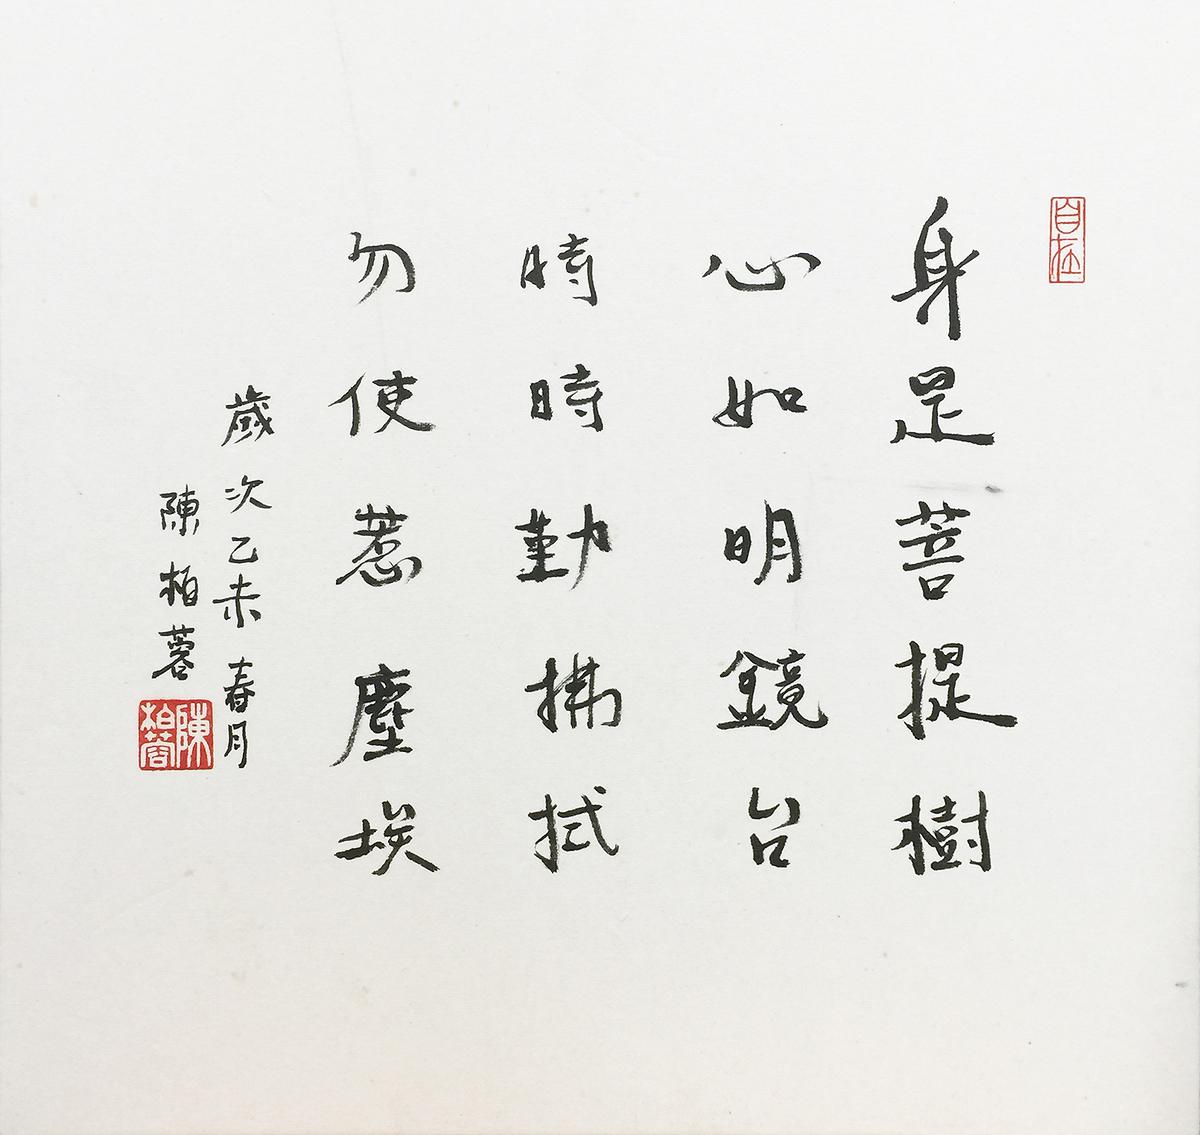 自在
身是菩提樹
心如明鏡台
時時勤拂拭
勿使惹塵埃
歲次乙未春月
陳柏蓉
陳柏蓉